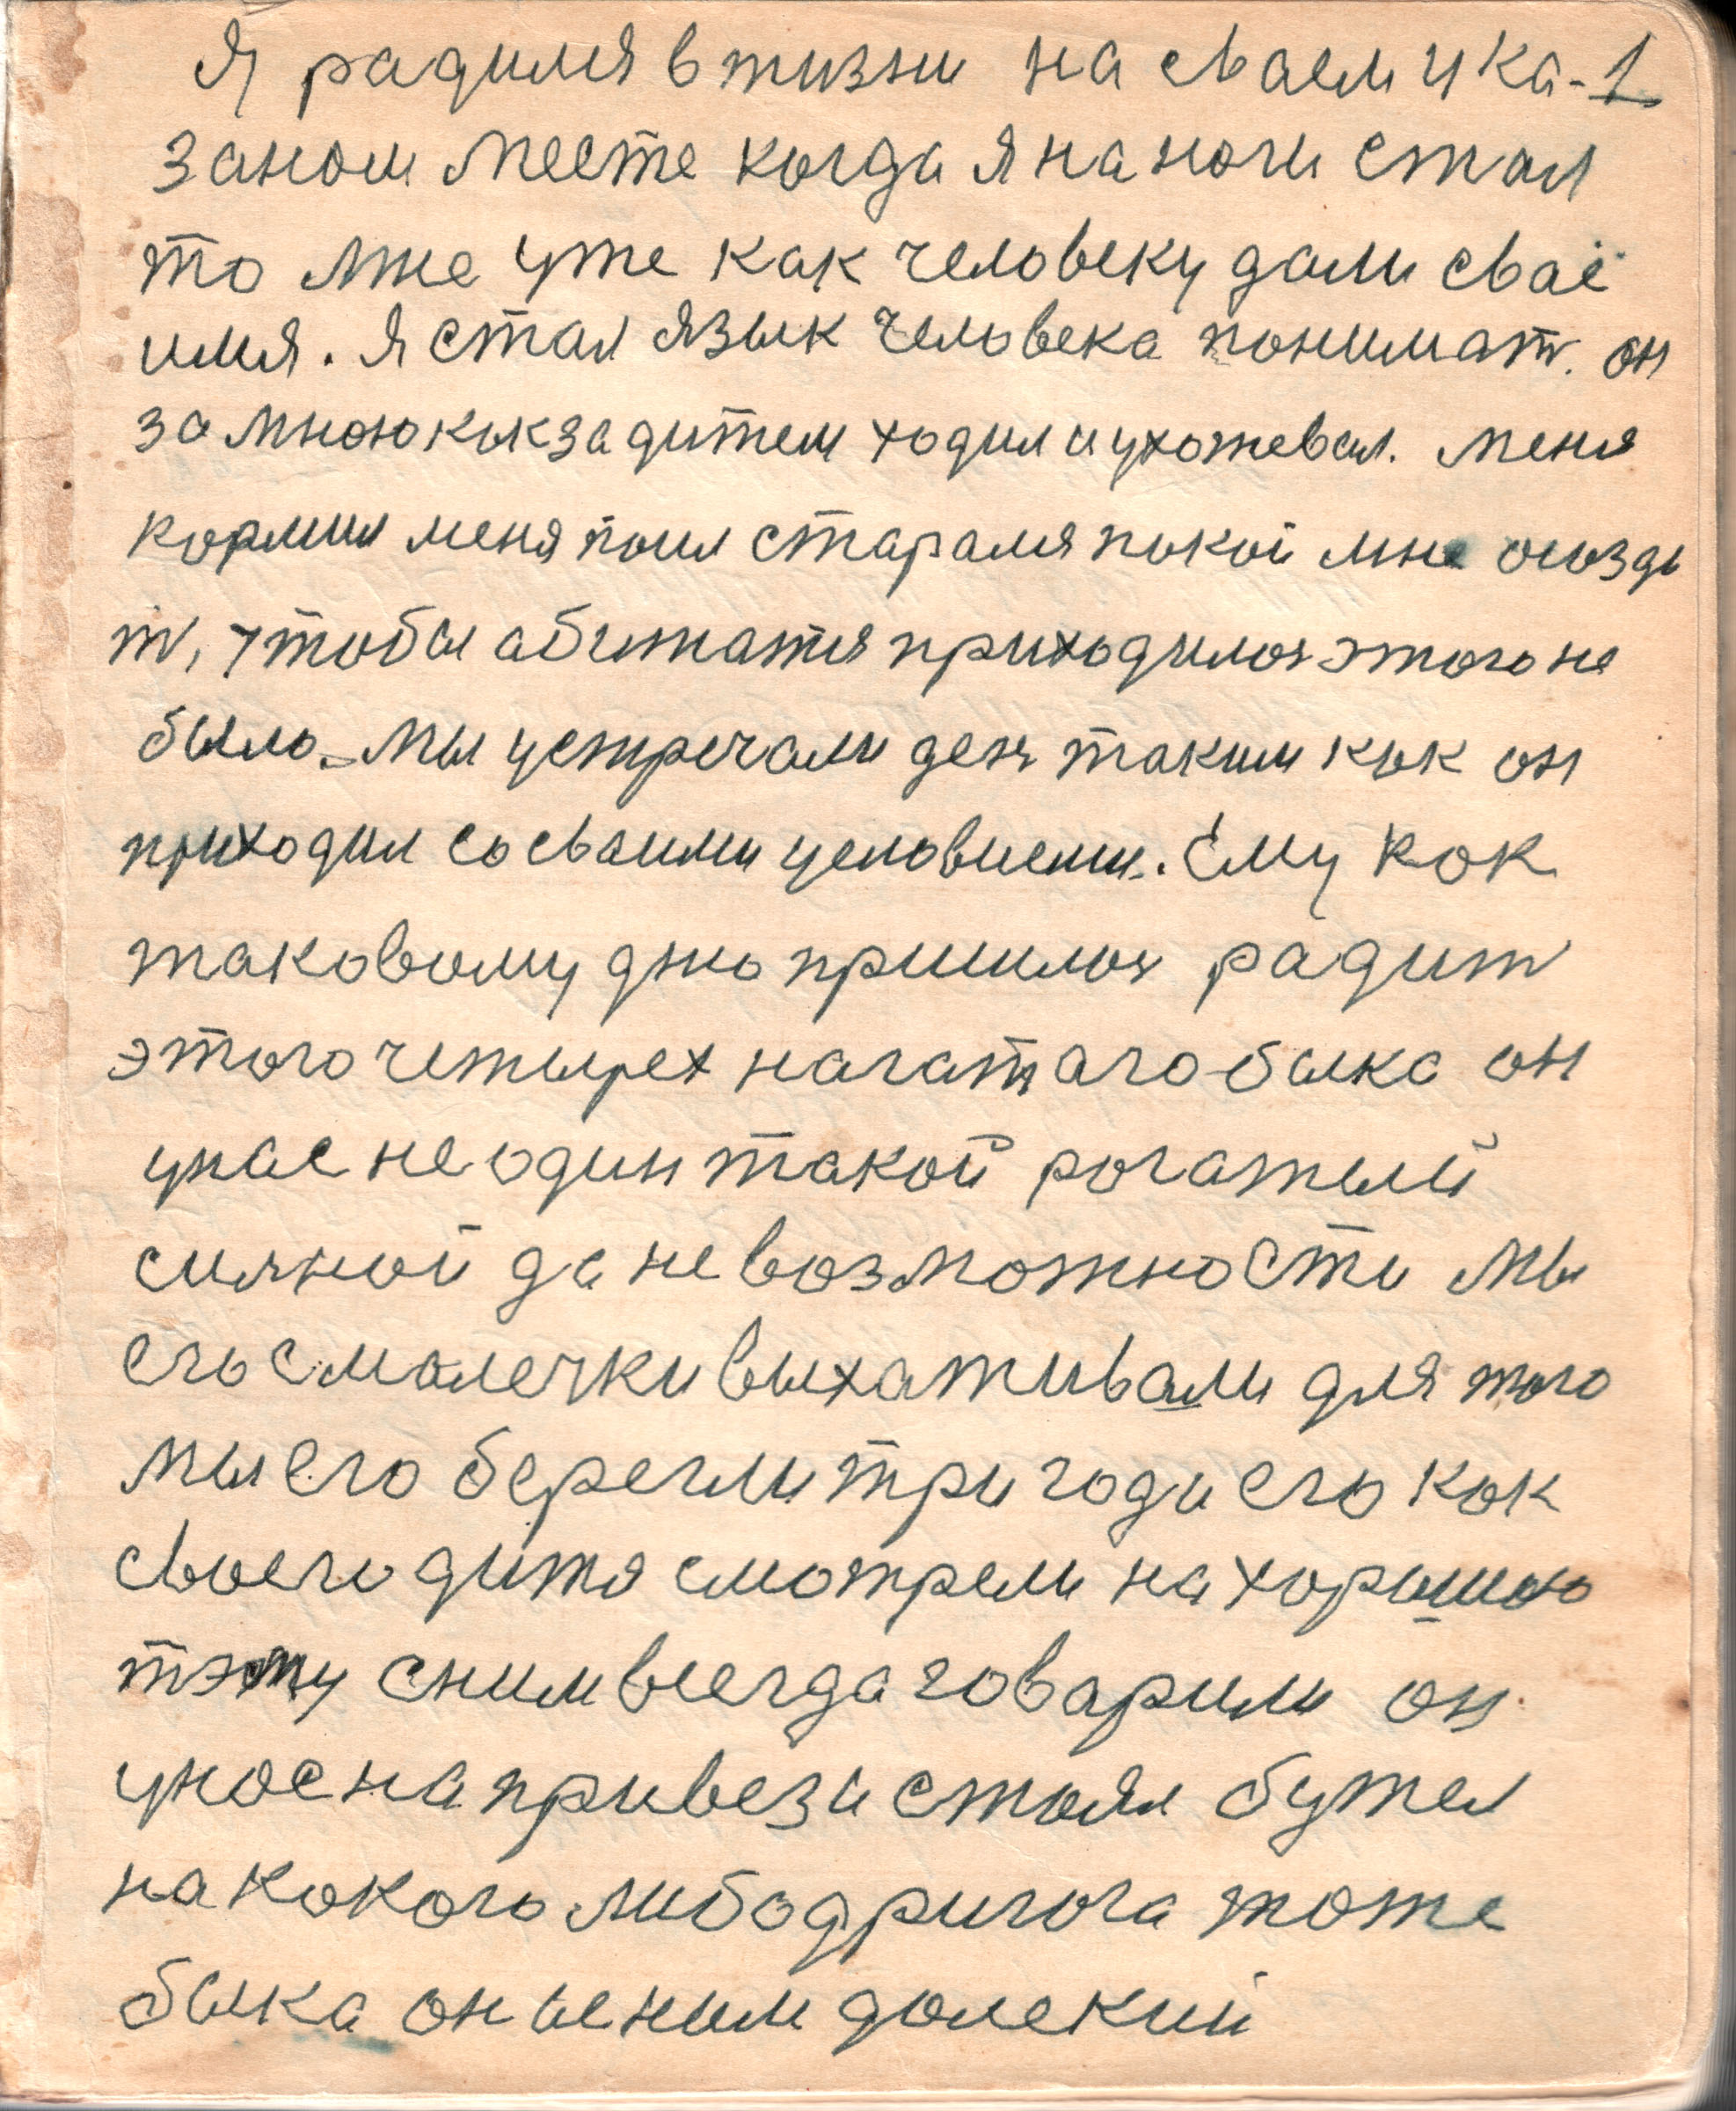 Я радился в жизни на сваем ука- 1
заном месте когда я на ноги стал
то мне уже как человеку дали сваё
имя. Я стал язык человека понимать. он
за мною как за дитем ходил и ухожевал. меня
кормил меня поил старался покой мне создо
ть, чтобы абижатся приходилось этого не
было. мы устречали день таким как он
приходил со сваими условиеми. Ему как
таковому дню пришлось радить
этого четырех нагатаго быка он
унас не один такой рогатый
сильной да невозможности мы
его смалечки выхаживали для того
мы его берегли три года его как
своего дитя смотрели на хорошою
тэму сним всегда говарили он
унас на привези стоял бужел
на какого либо другога тоже
быка он ысным далекий